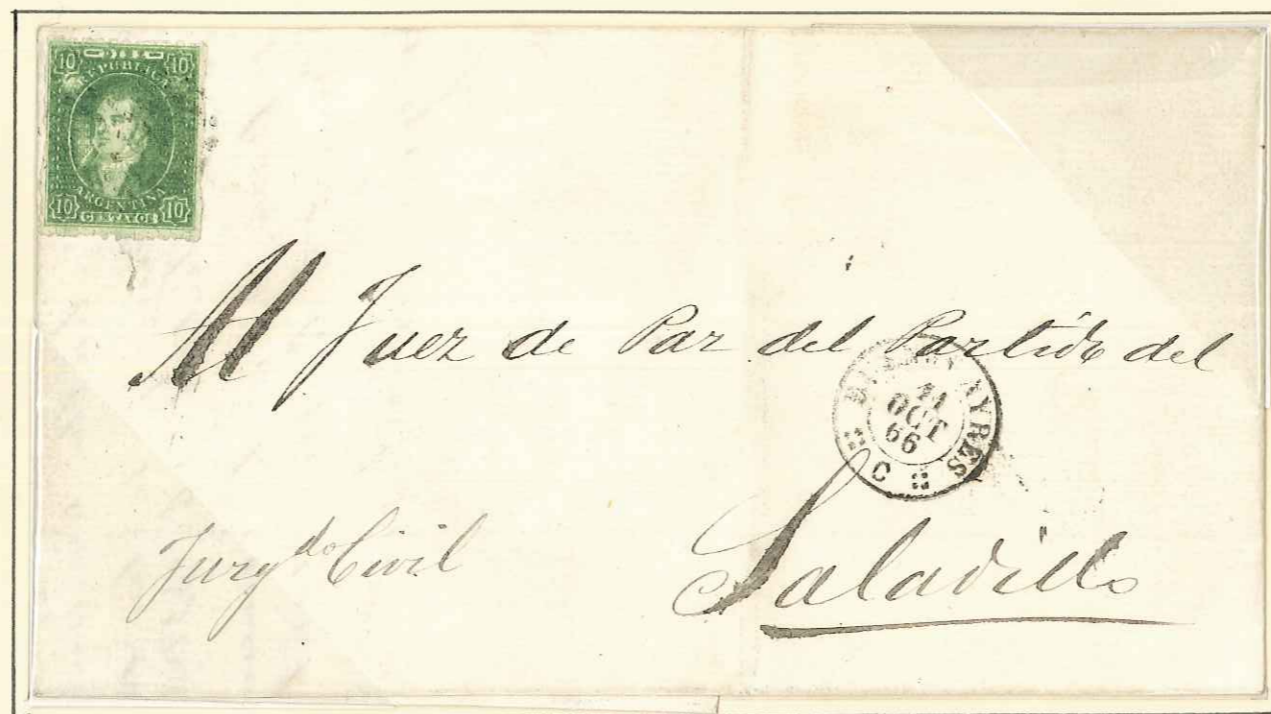 10 10
REPUBLICA
ARGENTINA
10 CENTAVOS 10
Al Juez de Paz del Partido del
BUENOS AYRES
OCT
66
C
Juzgdo Civil
Saladillo